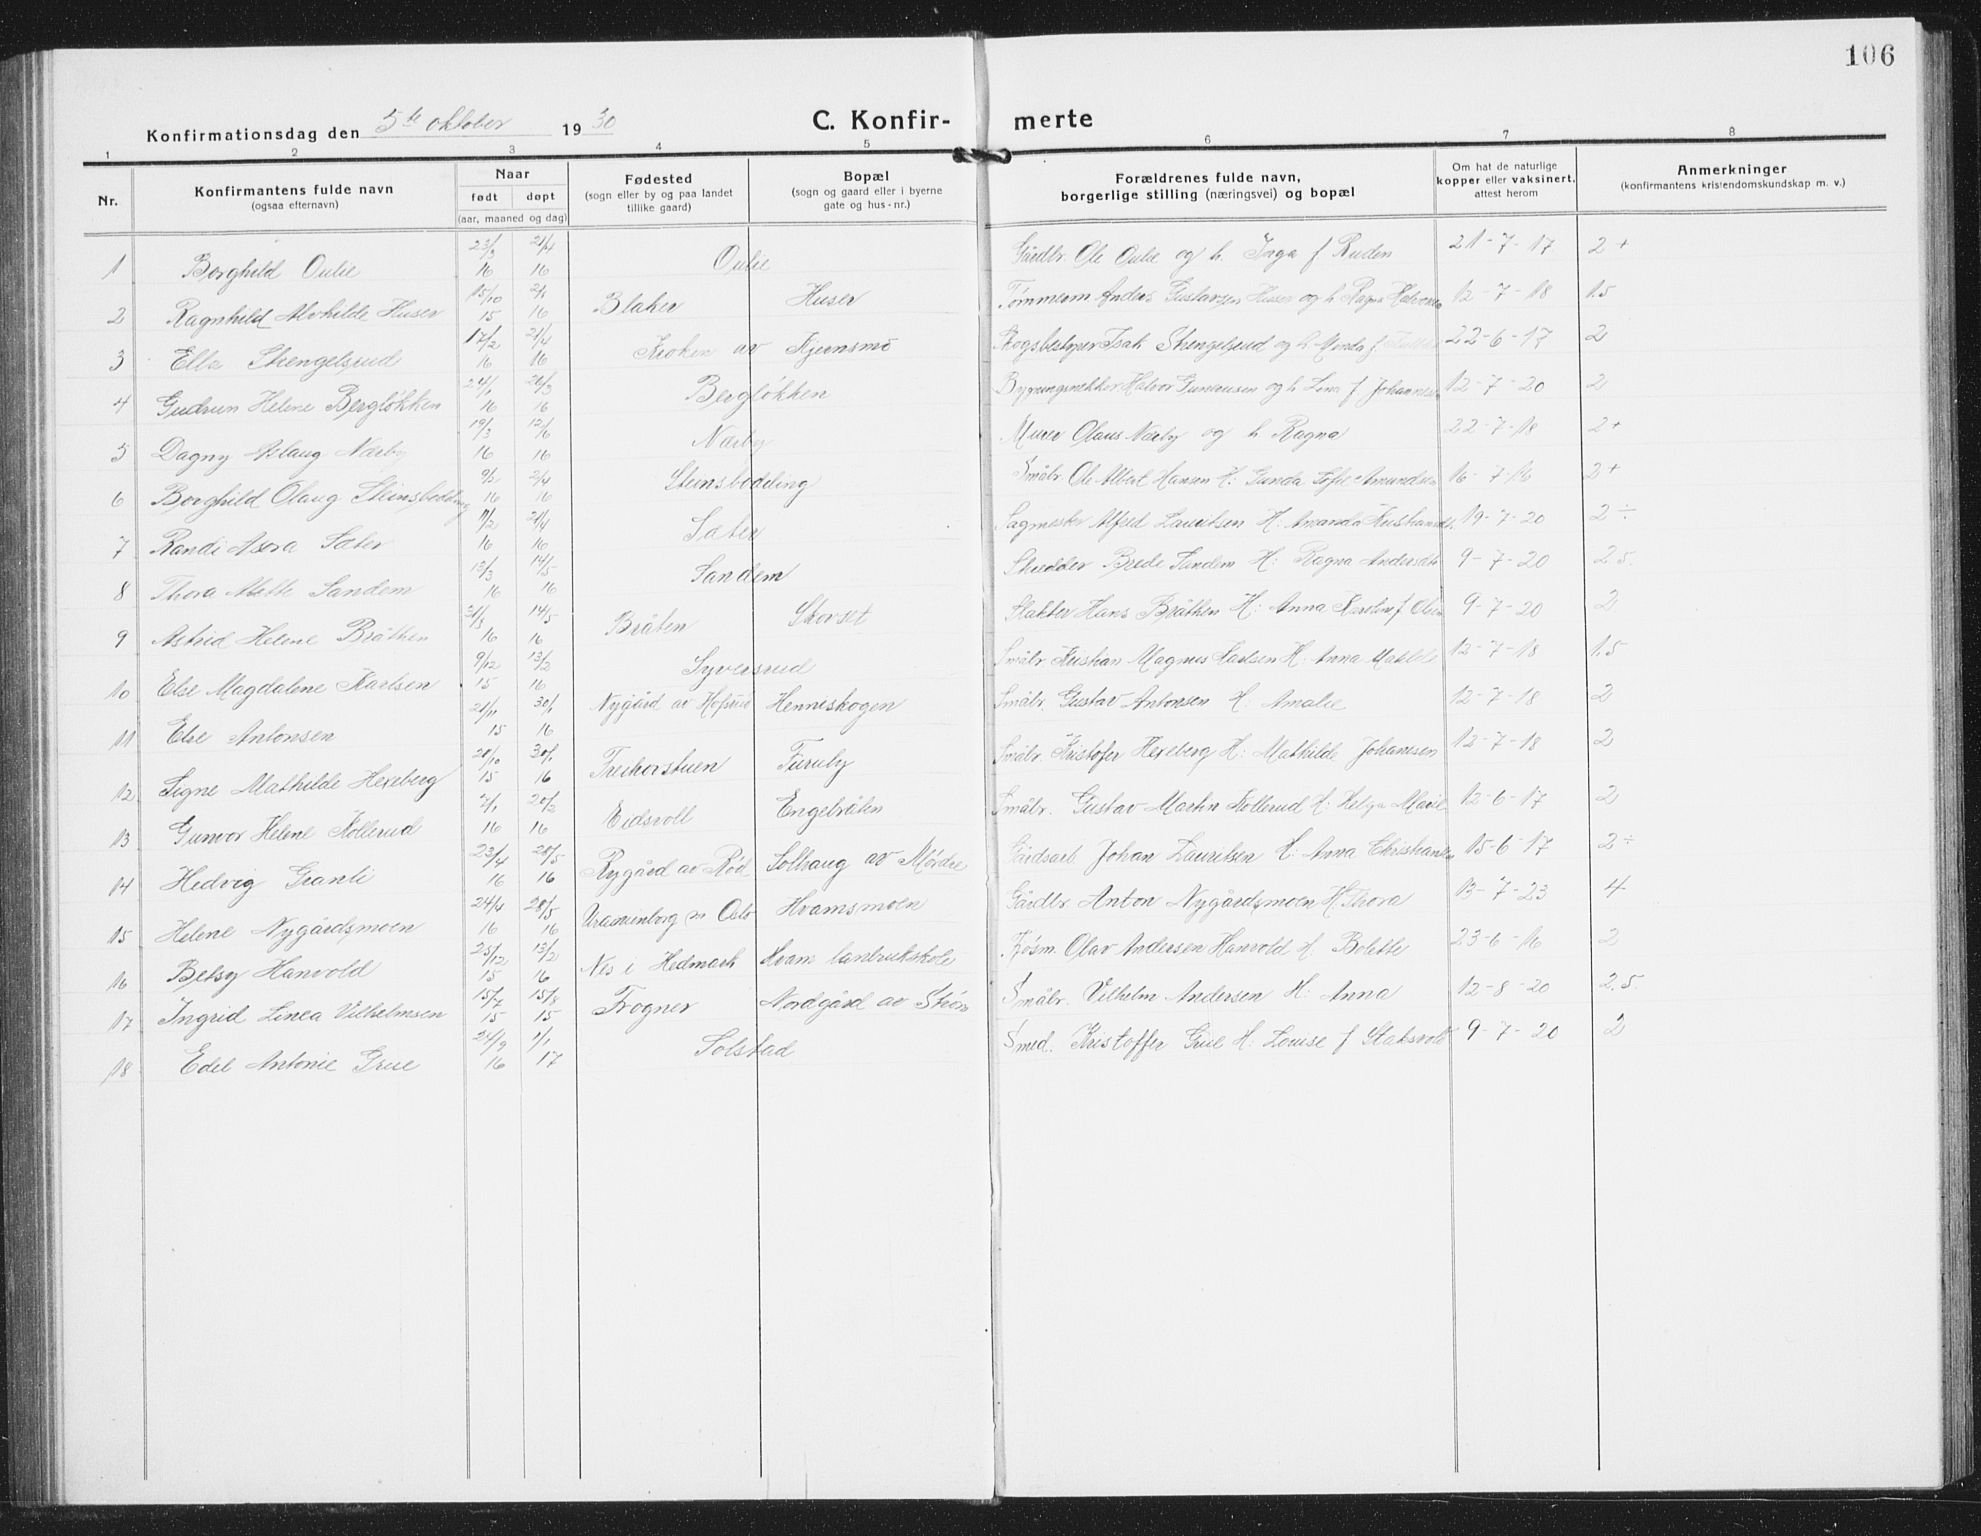 106
Konfirmationsdag den 5te oktober 1930
C. Konfir- merte
1 2 3 4 5 6 7 8
Nr.
Konfirmantens fulde navn
(ogsaa efternavn)
Naar
født døpt
(aar, maaned og dag)
Fødested
(sogn eller by og paa landet
tillike gaard)
Bopæl
(sogn og gaard eller i byerne
gate og hus-nr.)
Forældrenes fulde navn,
borgerlige stilling (næringsvei) og bopæl
Om hat de naturlige
kopper eller vaksinert,
attest herom
Anmerkninger
(konfirmantens kristendomskundskap m. v.)
1 Borghild Oulie 23/3 16 21/4 16 Oulie Gårdbr. Ole Oulie og h. Inga f Ruden 21-7-17 2+
2 Ragnhild Alvhilde Huser 15/10 15 2/1 16 Blaker Huser Tømmerm Anders Gustavsen Huser og h Ragna 12-7-18 1.5
3 Ella Strengelsrud 17/2 16 21/4 16 Kroken av Kjernsmo Isak Strengelsrud og h. 22-6-17 2
4 Gudrun Helene Bergløkken 24/1 16 26/3 16 Bergløkken Halvor Gunerusen og h Lina f Johannesen 12-7-20 2
5 Dagny Aslaug Nærby 19/3 16 12/6 16 Nærby Murer Olaus Nærby og h. Ragna 22-7-18 2+
6 Borghild Olaug Steinsbødding 9/2 16 2/4 16 Steinsbødding Småbr. Ole Albert Hansen H: Gunda Sofie Amundsen 16-7-16 2+
7 Randi Asora Sæter 11/2 16 21/4 16 Sæter Sagmester Alfred Lauritsen H. Amanda 19-7-20 2÷
8 Thora Mette Sandem 13/3 16 14/5 16 Sandem Skredder Brede Sandem H: Ragna 9-7-20 2.5.
9 Astrid Helene Bråthen 31/3 16 14/5 16 Bråten Skorset Slakter Hans Bråthen H: Anna Karoline f Olsen 9-7-20 2
10 Else Magdalene Karlsen 9/12 15 13/2 16 Syversrud Småbr. Kristian Magnus Karlsen H. Anna 12-7-18 1.5
11 Else Antonsen 21/11 15 30/1 16 Nygård av Hofsrud Henneskogen Småbr. Gustav Antonsen H: Amalie 12-7-18 2
12 Signe Mathilde Hexeberg 20/10 15 30/1 16 Furuby Småbr. Kristofer Hexeberg H: Mathilde Johansen 12-7-18 2
13 Gunvor Helene Kollerud 7/1 16 20/2 16 Eidsvoll Engebråten Småbr. Gustav Martin Kollerud H: Helga Marie 12-6-17 2
14 Hedvig Granli 23/4 16 28/5 16 Rygård av Rød Solhaug av Mørdre Gårdsarb Johan Lauritsen H: Anna Christiansen 15-6-17 2÷
15 Helene Nygårdsmoen 24/4 16 28/5 16 Uranienborg m Oslo Hvamsmoen Gårdbr Anton Nygårdsmoen H. Thora 13-7-23 4
16 Betsy Hanvold 25/12 15 13/2 16 Nes i Hedmark Hvam lantbrukskole Olav Andersen Hanvold H. Bolette 23-6-16 2
17 Ingrid Linea Vilhelmsen 15/7 15 15/8 15 Frogner Nordgård av Småbr. Vilhelm Andersen H: Anna 12-8-20 2.5.
18 Edel Antonie Grue 24/9 16 1/1 17 Solstad Smed. Kristoffer Grue H: Louise f Staksvold 9-7-20 2